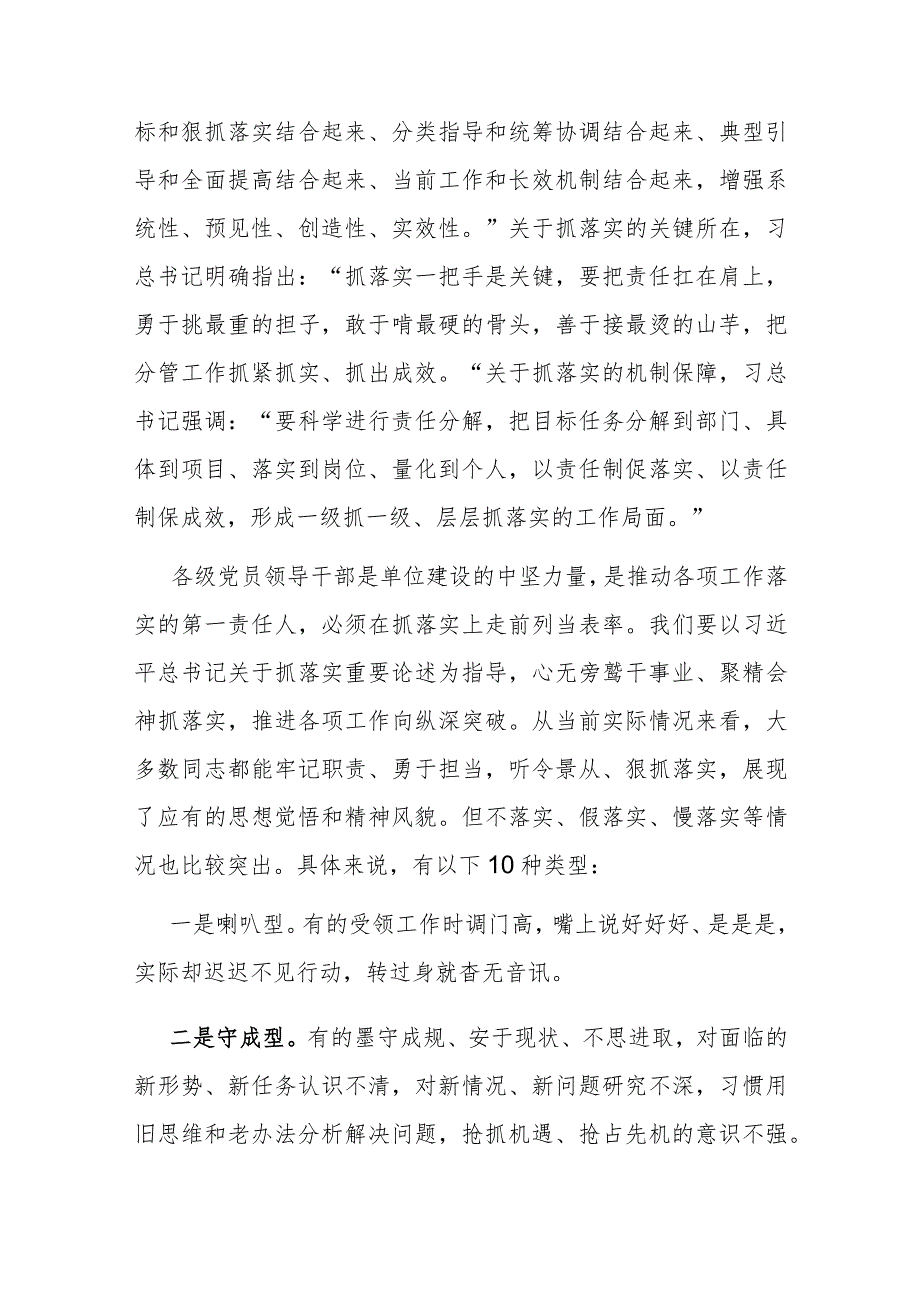 标和狠抓落实结合起来、分类指导和统筹协调结合起来、典型引
导和全面提高结合起来、当前工作和长效机制结合起来，增强系
统性、预见性、创造性、实效性。”关于抓落实的关键所在，习
总书记明确指出：“抓落实一把手是关键，要把责任扛在肩上，
勇于挑最重的担子，敢于啃最硬的骨头，善于接最烫的山芋，把
分管工作抓紧抓实、抓出成效。“关于抓落实的机制保障，习总
书记强调：“要科学进行责任分解，把目标任务分解到部门、具
体到项目、落实到岗位、量化到个人，以责任制促落实、以责任
制保成效，形成一级抓一级、层层抓落实的工作局面。”
各级党员领导干部是单位建设的中坚力量，是推动各项工作落
实的第一责任人，必须在抓落实上走前列当表率。我们要以习近
平总书记关于抓落实重要论述为指导，心无旁鹜干事业、聚精会
神抓落实，推进各项工作向纵深突破。从当前实际情况来看，大
多数同志都能牢记职责、勇于担当，听令景从、狠抓落实，展现
了应有的思想觉悟和精神风貌。但不落实、假落实、慢落实等情
况也比较突出。具体来说，有以下10种类型：
一是喇叭型。有的受领工作时调门高，嘴上说好好好、是是是，
实际却迟迟不见行动，转过身就杳无音讯。
二是守成型。有的墨守成规、安于现状、不思进取，对面临的
新形势、新任务认识不清，对新情况、新问题研究不深，习惯用
旧思维和老办法分析解决问题，抢抓机遇、抢占先机的意识不强。